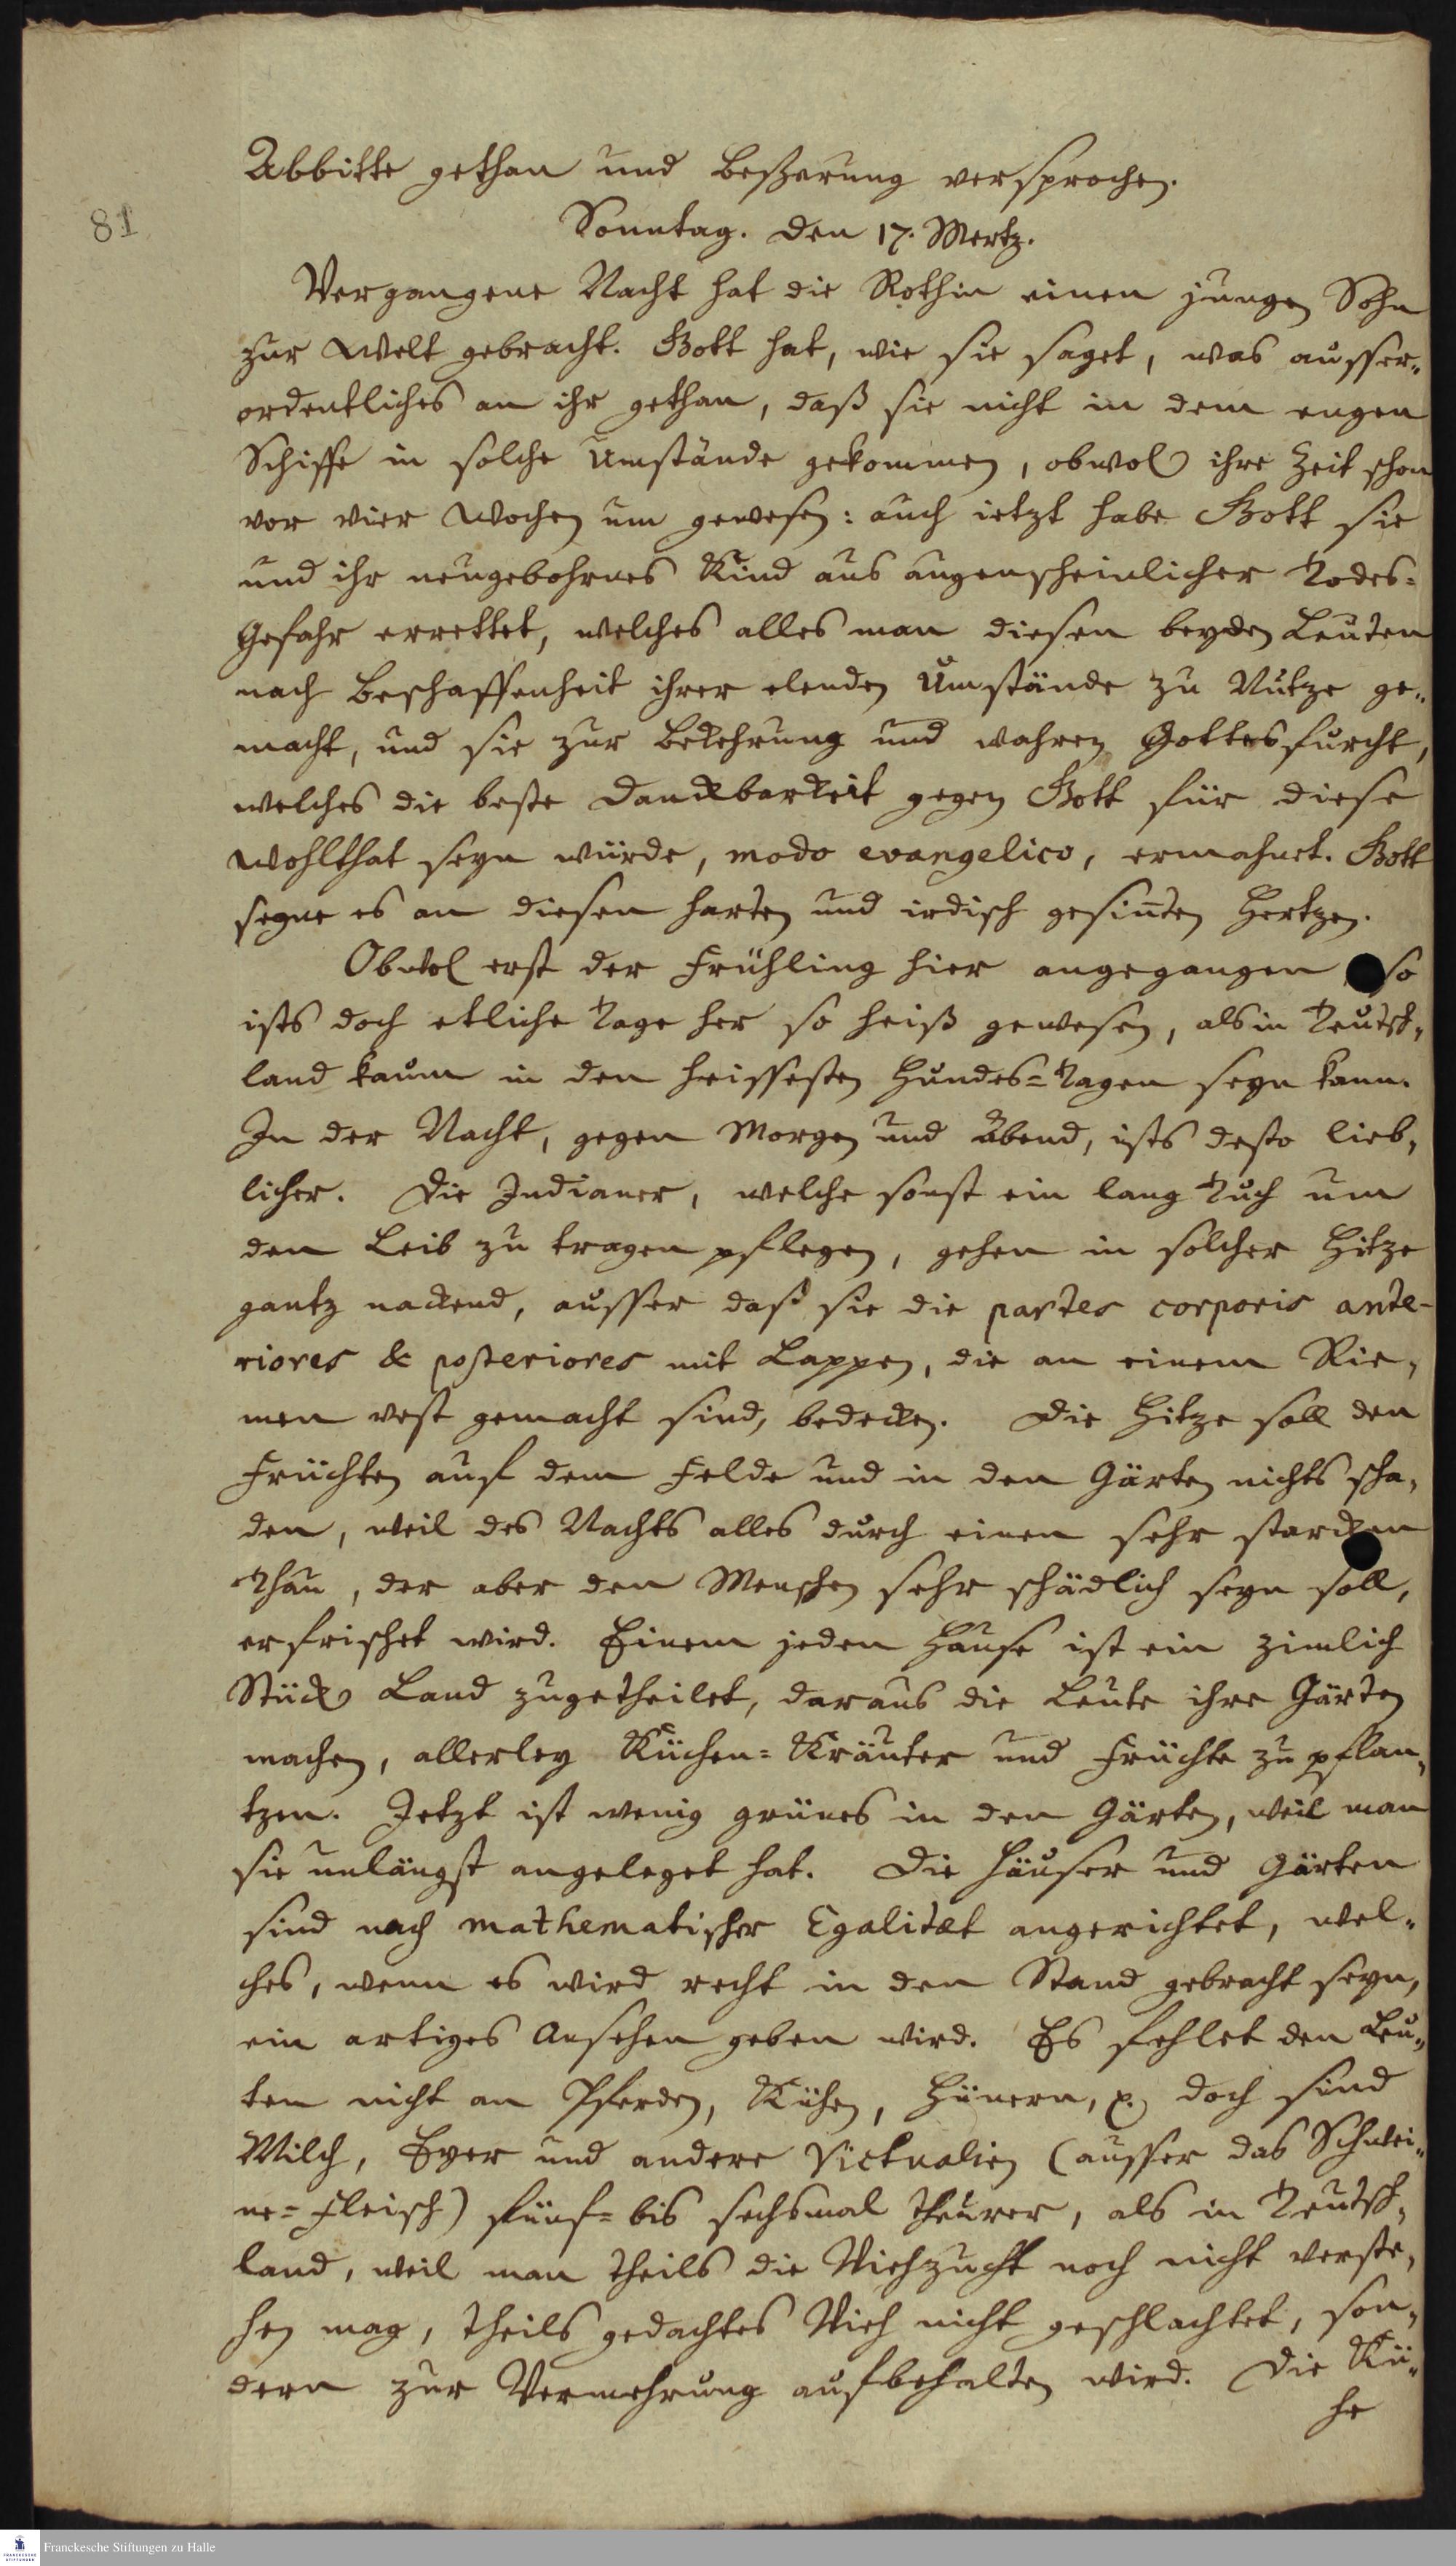 Abbitte gethan und Beßerung versprochen.
81
Sonntag. den 17. Mertz.
Vergangene Nacht hat die Rothin einen jungen Sohn
zur Welt gebracht. Gott hat, wie sie saget, was ausser„
ordentliches an ihr gethan, daß sie nicht in dem engen
Schiffe in solche Umstände gekommen, obwol ihre Zeit schon
vor vier Wochen um gewesen: auch ietzt habe Gott sie
und ihr neugebohrnes Kind aus augenscheinlicher Todes=
Gefahr errettet, welches alles man diesen beyden Leuten
nach Beschaffenheit ihrer elenden Umstände zu Nutze ge„
macht, und sie zur Bekehrung und wahren Gottesfurcht,
welches die beste Danckbarkeit gegen Gott für diese
Wohlthat seyn würde, modo evangelico, ermahnet. Gott
segne es an diesen harten und irdisch gesin̅ten Hertzen.
Obwol erst der Frühling hier angegangen, so
ists doch etliche Tage her so heiß gewesen, als in Teutsch„
land kaum in den heissesten Hundes=Tagen seyn kann.
In der Nacht, gegen Morgen und Abend, ists desto lieb„
licher. Die Indianer, welche sonst ein lang Tuch um
den Leib zu tragen pflegen, gehen in solcher Hitze
gantz nackend, ausser daß sie die partes corporis ante-
riores & posteriores mit Lappen, die an einem Rie„
men vest gemacht sind, bedecken. Die Hitze soll den
Früchten auf dem Felde und in den Gärten nichts scha„
den, weil des Nachts alles durch einen sehr starcken
Thau, der aber den Menschen sehr schädlich seyn soll,
erfrischet wird. Einem jeden Hause ist ein zimlich
Stück Land zugetheilet, daraus die Leute ihre Gärten
machen, allerley Küchen=Kräuter und Früchte zu pflan„
tzen. Jetzt ist wenig grünes in den Gärten, weil man
sie unlängst angeleget hat. Die Häuser und Gärten
sind nach mathematischer Egalitæt angerichtet, wel„
ches, wenn es wird recht in den Stand gebracht seyn,
ein artiges Ansehen geben wird. Es fehlet den Leu„
ten nicht an Pferden, Kühen, Hünern, p. doch sind
Milch, Eyer und andere Victualien (ausser das Schwei„
ne=Fleisch) fünf= bis sechsmal theurer, als in Teutsch„
land, weil man theils die Viehzucht noch nicht verste„
hen mag, theils gedachtes Vieh nicht geschlachtet, son„
dern zur Vermehrung aufbehalten wird. Die Kü„
he
Franckesche Stiftungen zu Halle